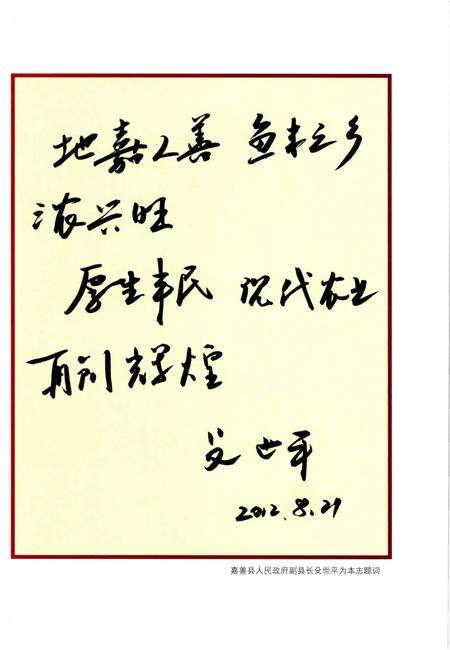 地嘉人善 鱼米之乡
浓兴旺
厚生丰民 现代农业
再创辉煌
殳世平
2012.8.21
嘉善县人民政府副县长殳世平为本志题词